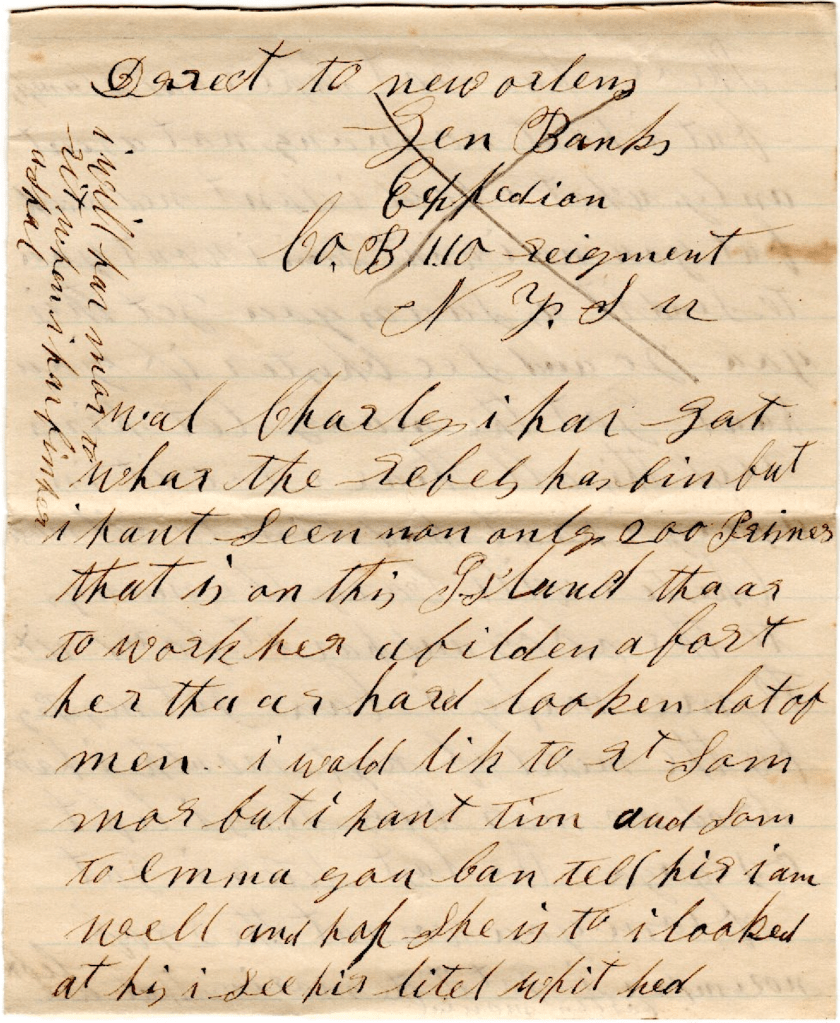 Direct to new orlens
Gen Banks
Exppedion
Co. B 110 reigment
N Y. S v
i will har mor to
rit when i har finher
ashal
wal Charles i har gat
whar the rebels has bin but
i hant seen non only 200 Prisners
that is on this Island tha ar
to work her a bilden a fort
her tha ar hard looken lot of
men. i wold lik to rt som
mor but i hant tim and som
to Emma you can tell hir i am
well and hop She is to i looked
at his i see hir litel whit hed